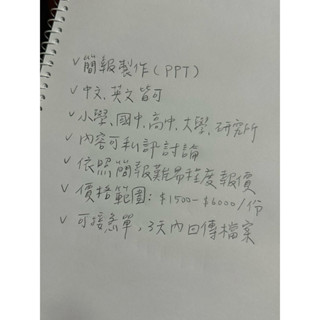 ✓簡報製作(PPT)
✓中文、英文皆可
✓小學、國中、高中、大學、研究所
✓內容可私訊討論
✓依照簡報難易程度報價
✓價格範圍:$1500-$6000/份
✓可接急單,3天內回傳檔案